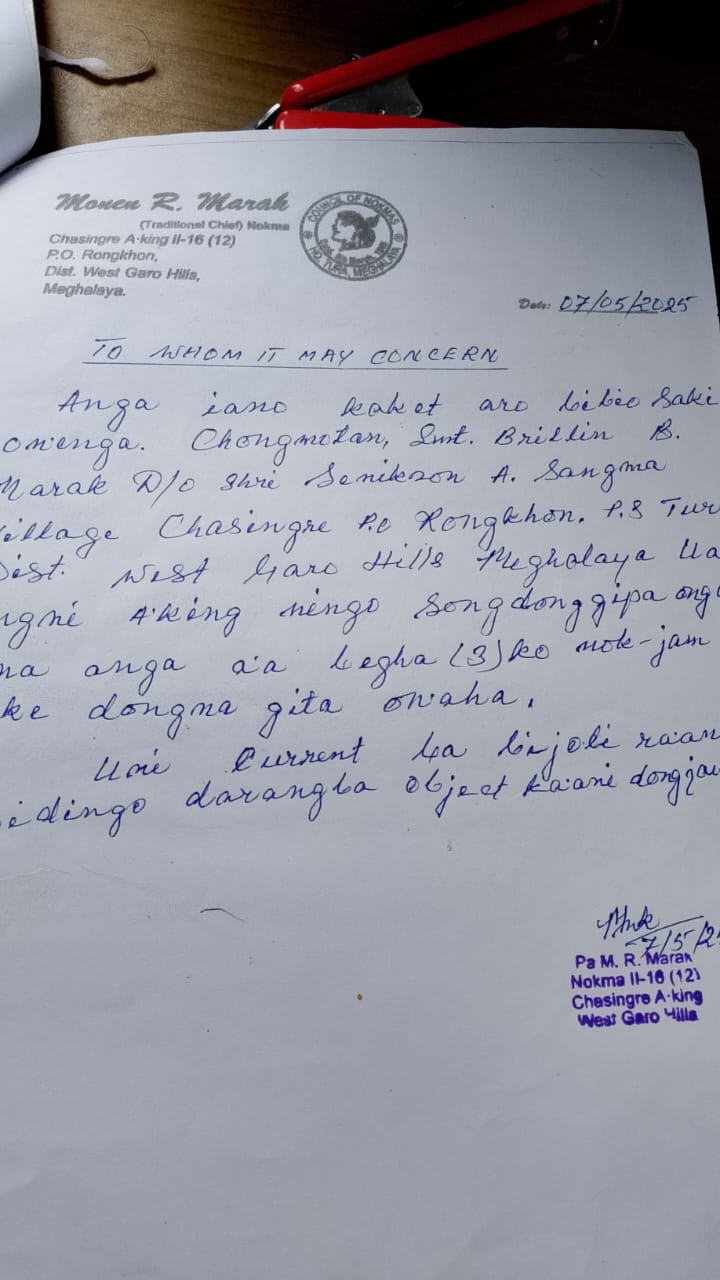 Monen R. Marak
(Traditional Chief) Nokma
Chasingre A·king II-16 (12)
P.O. Rongkhon,
Dist. West Garo Hills,
Meghalaya.
COUNCIL OF NOKMAS
HQ. TURA, MEGHALAYA
Date: 07/05/2025
TO WHOM IT MAY CONCERN
Anga iano kaket aro bibeo Saki
on·enga. Chongmotan, Smt. Brillin B.
Marak D/o Shri Senikson A. Sangma
Village Chasingre P.O Rongkhon. P.S Tur
Dist. West Garo Hills Meghalaya Ua
A'king ningo songdonggipa ong
na anga a'a begha (3) ko nok-jam
ke dongna gita on·aha.
Uni Current ba bijoli ra·an
dingo darangba object ka·ani dongja
7/5/2
Pa M. R. Marak
Nokma II-16 (12)
Chasingre A·king
West Garo Hills